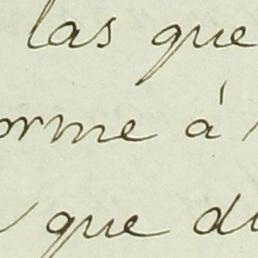 las que
orme á
que di